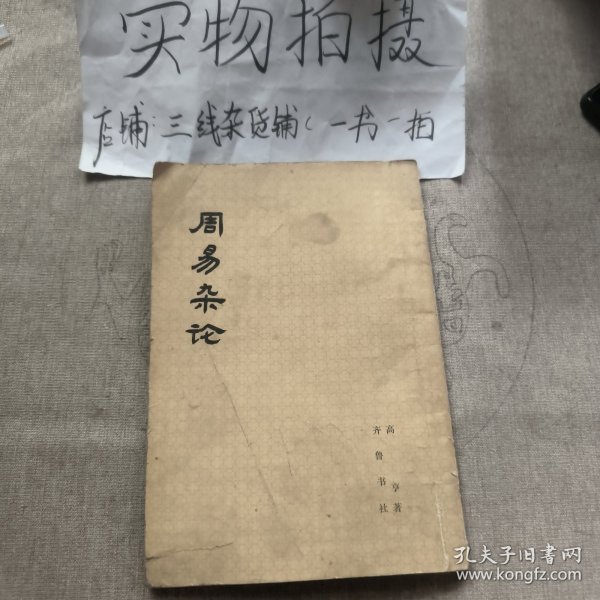 实物拍摄
店铺:三线杂货铺(一书一拍
周易杂论
高亨著
齐鲁书社
孔夫子旧书网
www.kongfz.com